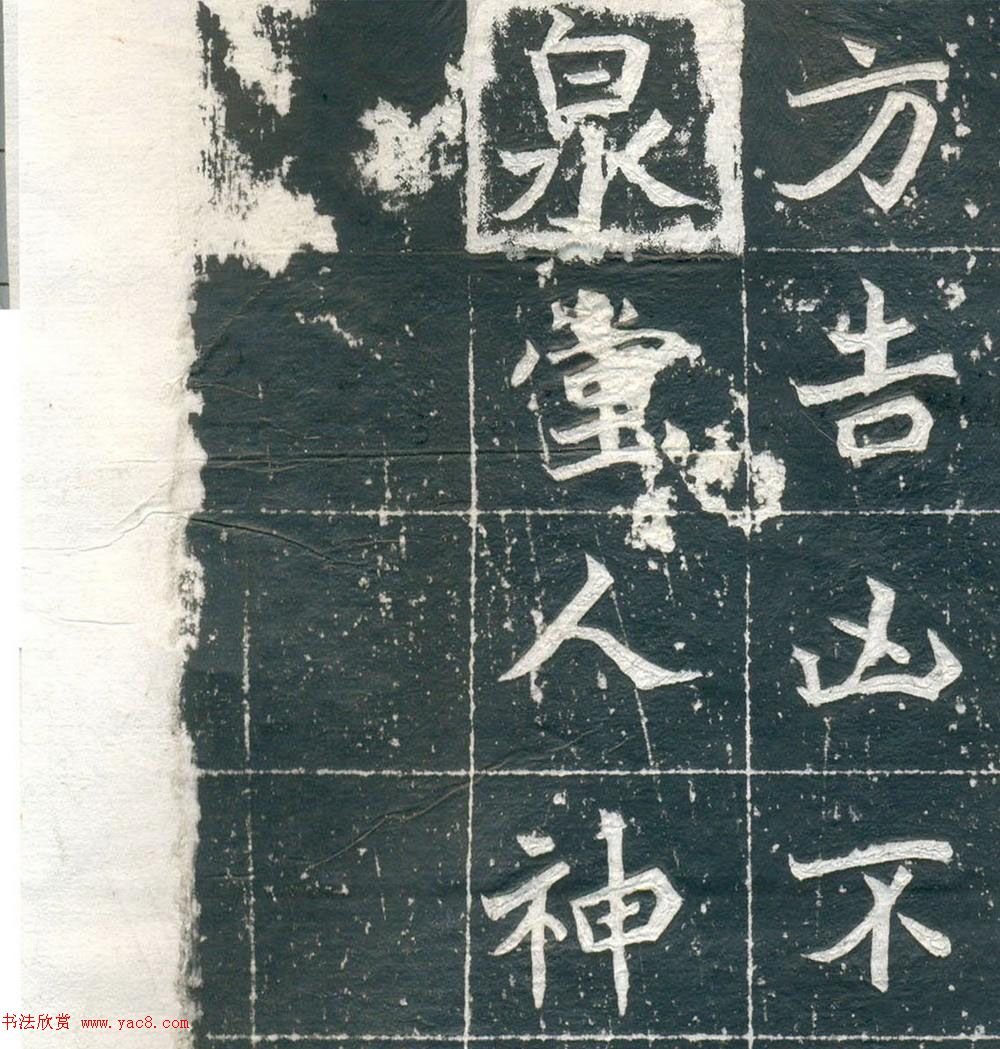 方告凶不
泉堂人神
书法欣赏 www.yac8.com